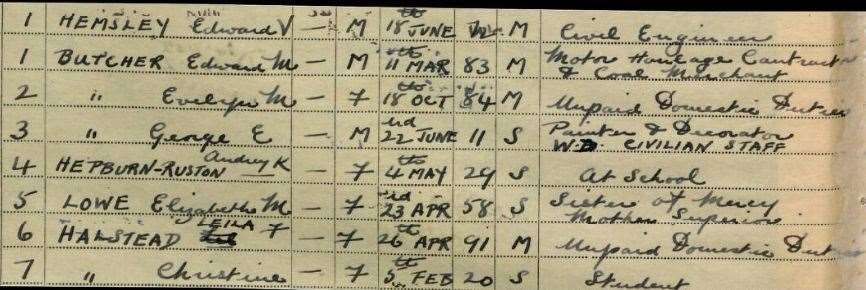 1 HEMSLEY Edward V — M 18th JUNE M Civil Engineer
1 BUTCHER Edward M — M 11th MAR 83 M Motor Haulage Contractor
& Coal Merchant
2 " Evelyn M — F 18th OCT 84 M Unpaid Domestic Duties
3 " George E — M 22nd JUNE 11 S Painter & Decorator
W.D. CIVILIAN STAFF
4 HEPBURN-RUSTON Audrey K — F 4th MAY 29 S At School
5 LOWE Elizabeth M — F 23rd APR 58 S Sister of Mercy
Mother Superior
6 HALSTEAD LEILA F — F 26th APR 91 M Unpaid Domestic Duties
7 " Christine — F 5th FEB 20 S Student